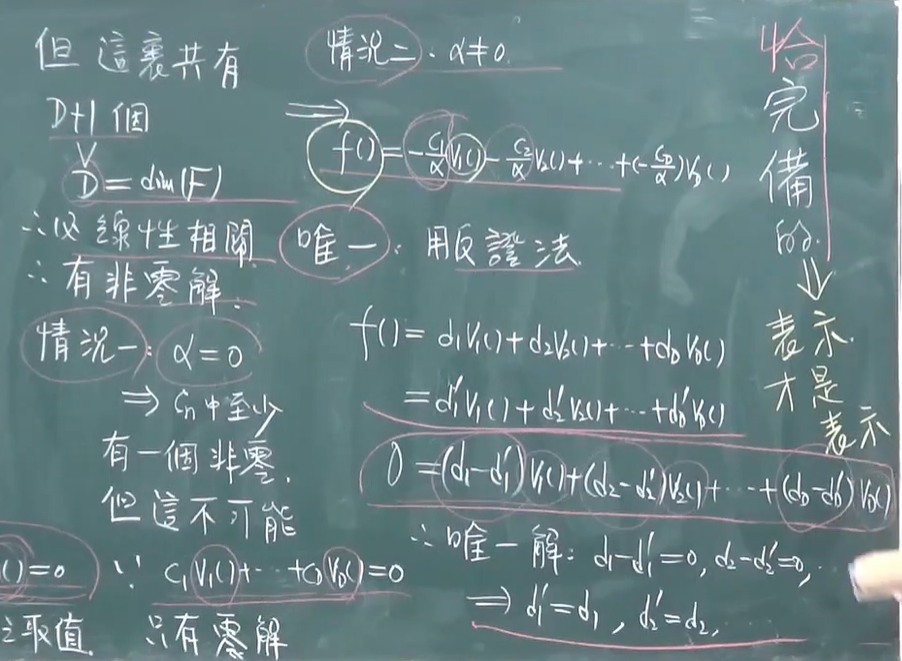 但這裏共有
D+1個
∨
D = dim(F)
∴必線性相關
∴有非零解.
情況一: α=0
⇒ Cn中至少
有一個非零.
但這不可能
()=0 ∵ C₁V₁()+⋯+C_DV_D()=0
取值. 只有零解
情況二: α≠0.
⇒
f()=-C₁/α V₁()-C₂/α V₂()+⋯+(-C_D/α)V_D()
唯一: 用反證法.
f()=d₁V₁()+d₂V₂()+⋯+d_DV_D()
=d₁'V₁()+d₂'V₂()+⋯+d_D'V_D()
0=(d₁-d₁')V₁()+(d₂-d₂')V₂()+⋯+(d_D-d_D')V_D()
∴唯一解: d₁-d₁'=0, d₂-d₂'=0,
⇒ d₁'=d₁, d₂'=d₂,
恰
完
備
的.
⇓
表示.
才是
表示